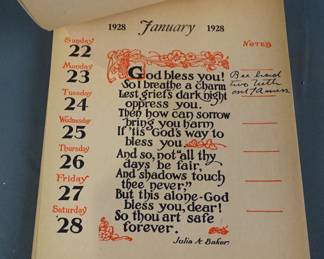 1928 January 1928
Sunday
22
Monday
23
Tuesday
24
Wednesday
25
Thursday
26
Friday
27
Saturday
28
God bless you!
So I breathe a charm
Lest grief's dark night
oppress you.
Then how can sorrow
bring you harm
If 'tis God's way to
bless you.
And so, not "all thy
days be fair,
And shadows touch
thee never,"
But this alone-God
bless you, dear!
So thou art safe
forever.
Julia A. Baker.
NOTES
two